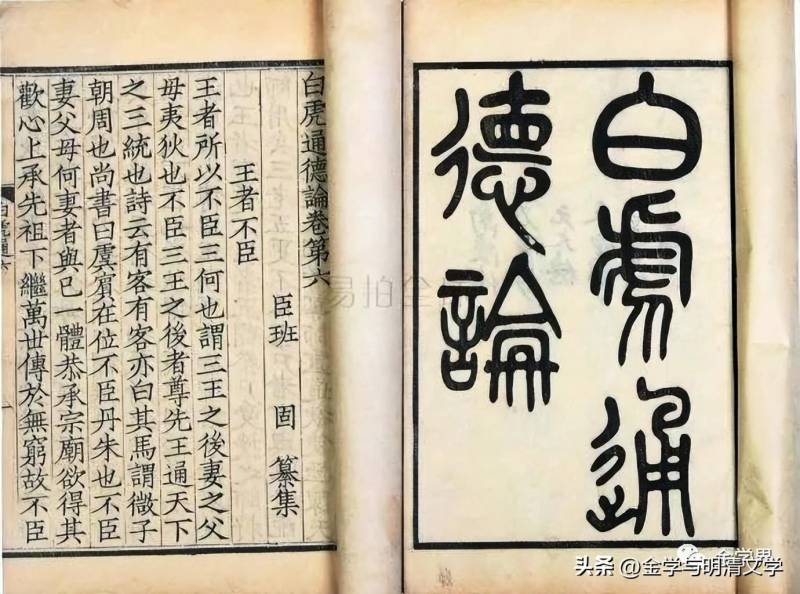 白虎通
德論
白虎通德論卷第六
臣班 固 纂集
王者不臣
王者所以不臣三何也謂三王之後妻之父
母夷狄也不臣三王之後者尊先王通天下
之三統也詩云有客有客亦白其馬謂微子
朝周也尚書曰虞賓在位不臣丹朱也不臣
妻父母何妻者與己一體恭承宗廟欲得其
歡心上承先祖下繼萬世傳於無窮故不臣
白虎通六
易拍全
金学界
头条 @金学与明清文学